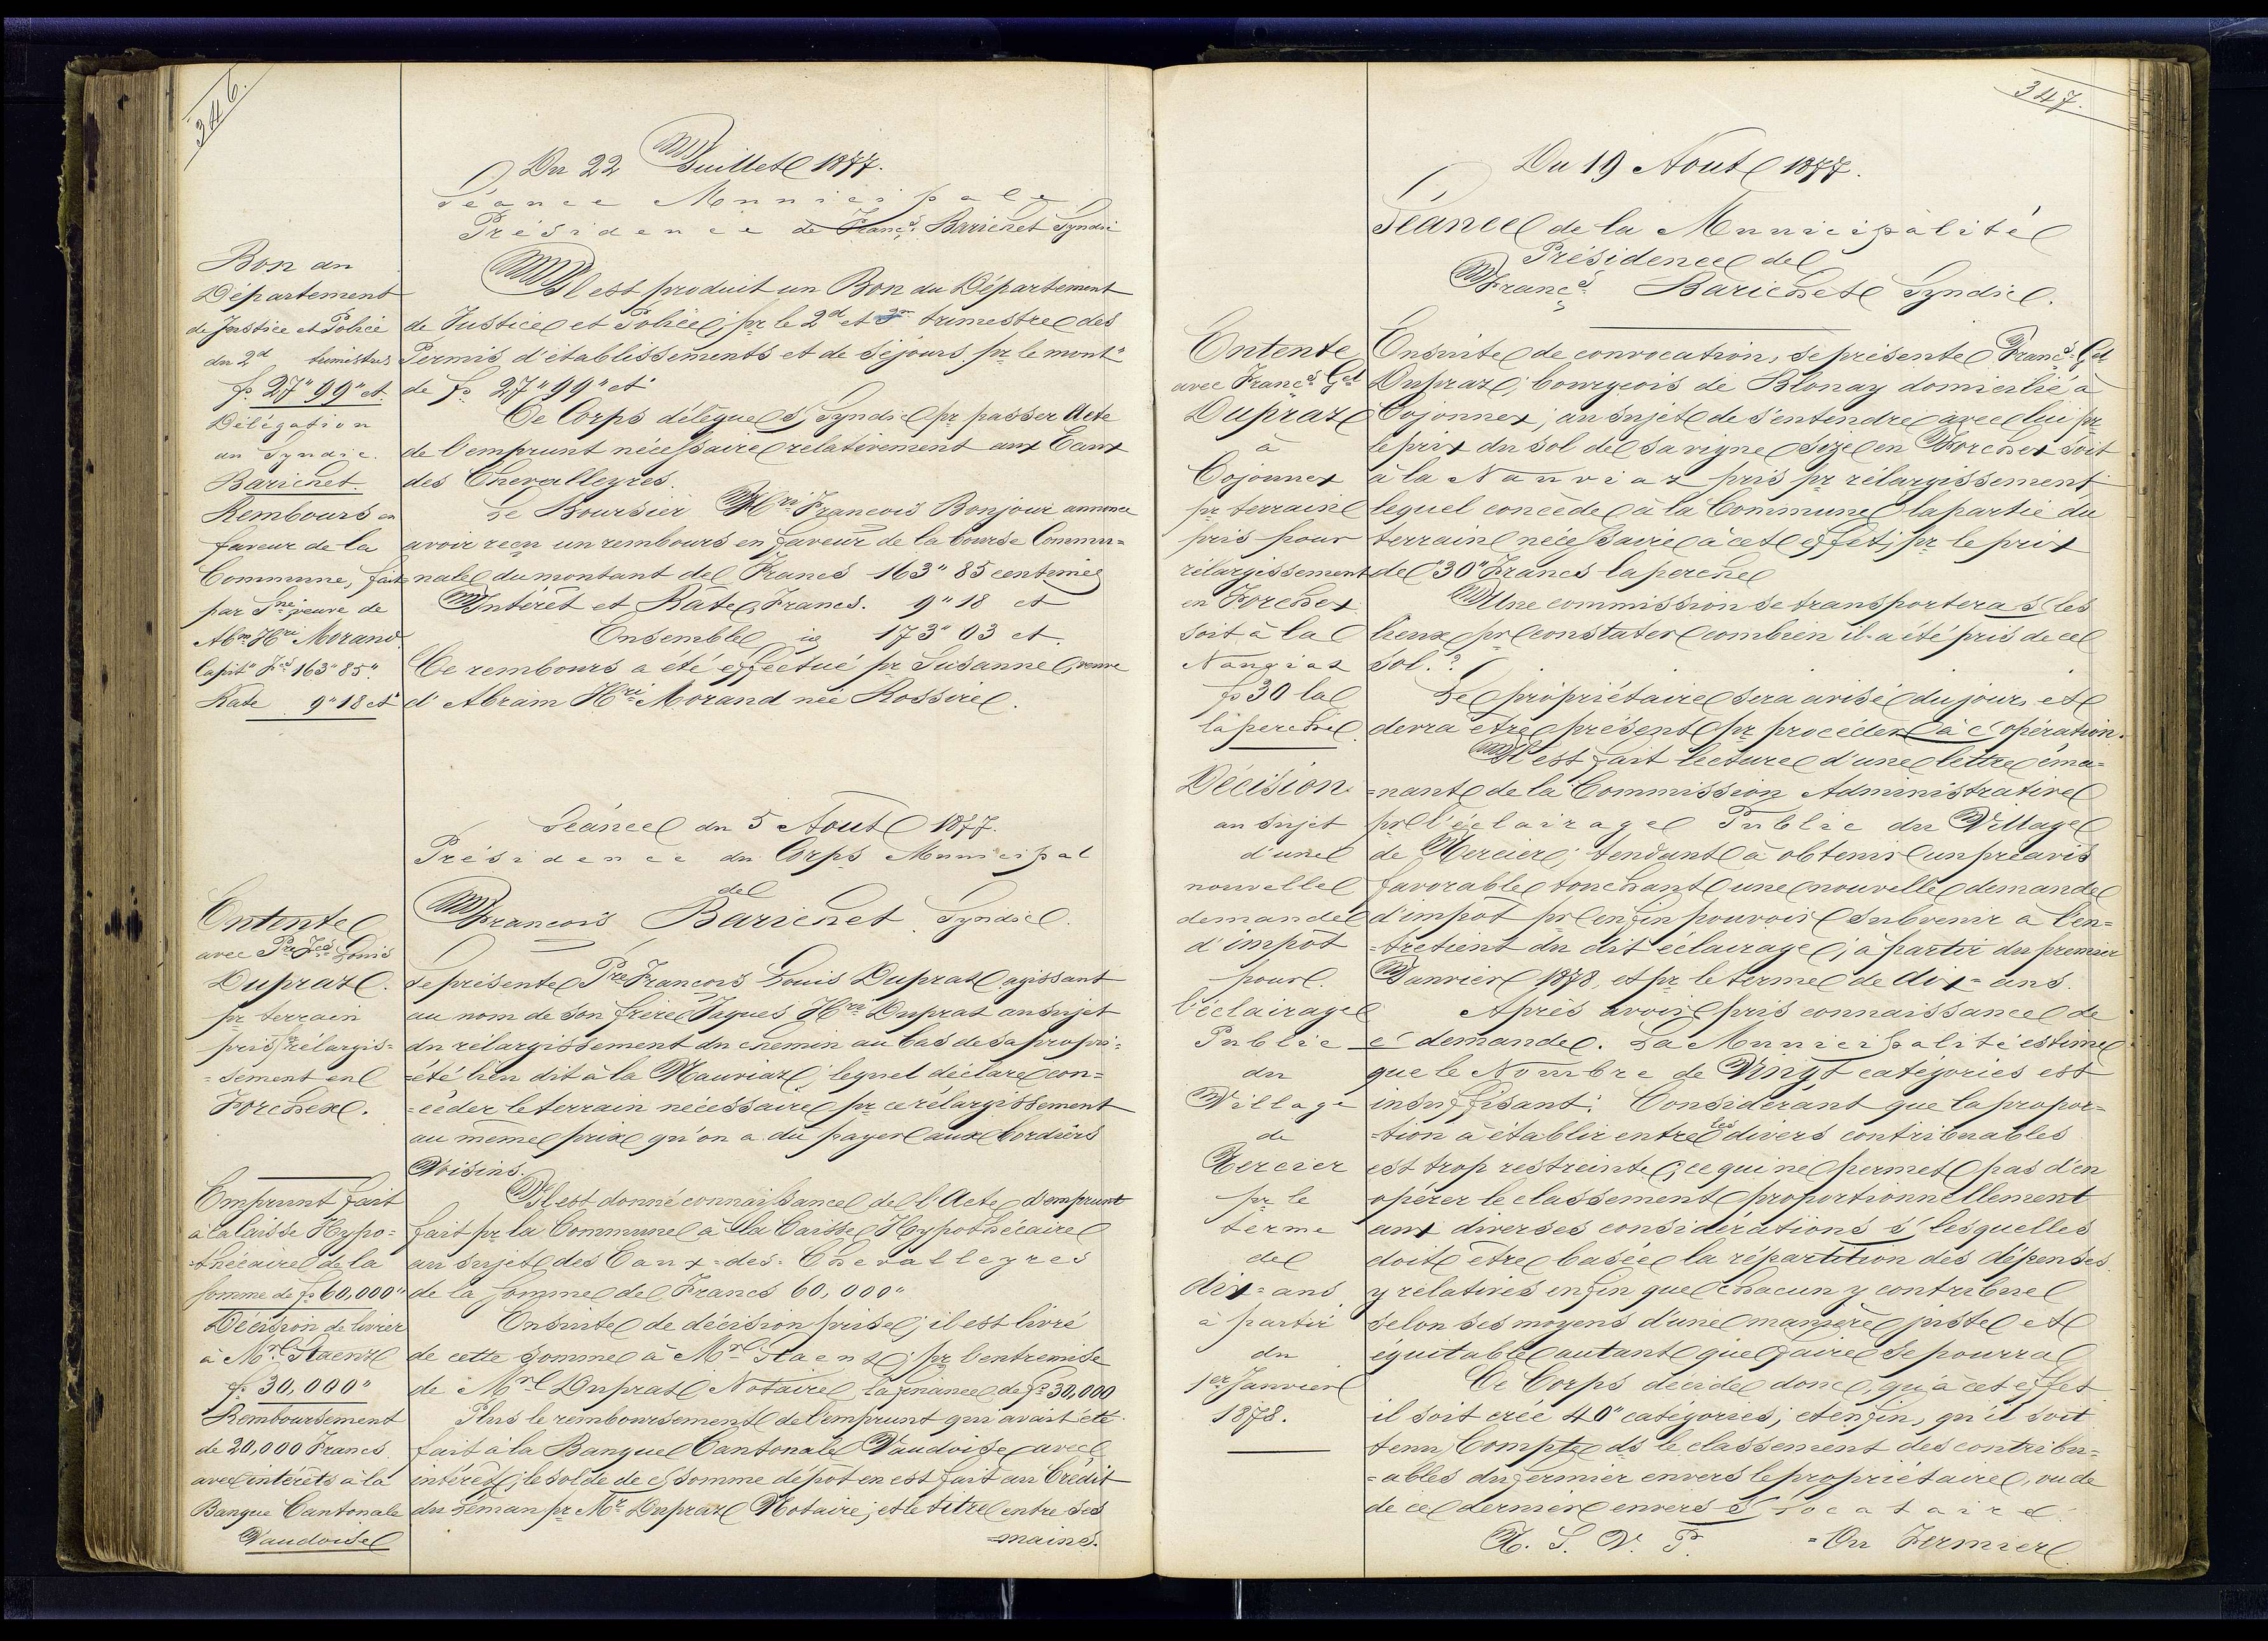 346.
Du 22 Juillet 1877.
Séance Municipale
Présidence de Franç.s Barichet Syndic
Bon du
Département
de Justice et Police
du 2d trimestres
fs 27"99" ct.
Délégation
au Syndic.
Barichet.
Rembours en
faveur de la
Commune, fait
par Sne veuve de
Abm Hri Morand.
Capit" fcs 163"85".
Rate 9"18 ct
Il est produit un Bon du Département
de Justice et Police, pr le 2d et trimestre des
Permis d'établissements et de séjours, pr le mont"
de fs 27"99" ct"
Ce Corps délègue s/ Syndic pr passer Acte
de l'emprunt nécessaire relativement aux Eaux
des Chevalleyres.
Le Boursier Hri François Bonjour annonce
avoir reçu un rembours en faveur de la bourse Commu=
nale du montant de Francs 163" 85 centimes
Intérêt et Rate, Francs. 9"18 ct
Ensemble 173"03 ct.
Ce rembours a été effectué pr Susanne, veuve
d'Abram Hri Morand née Rossire.
Séance du 5 Août 1877.
Présidence du Corps Municipal
de
François Barichet Syndic.
Entente
avec Pre Fcs Louis
Dupraz.
pr terrain
pris pr rélargis=
=sement en
Forchex.
Emprunt fait
à la Caisse Hypo=
thécaire de la
somme de fs 60,000"
Décision de livrer
à Mr Staenz
fs 30,000"
Remboursement
de 20,000 Francs
avec intérêts à la
Banque Cantonale
Vaudoise
Se présente Pre François Louis Dupraz agissant
au nom de son frère Jaques Hri Dupraz au sujet
du rélargissement du chemin au bas de sa propri=
=été lieu dit à la Nauviaz, lequel déclare con=
=céder le terrain nécessaire pr ce rélargissement
au même prix qu'on a dû payer aux bordiers
Voisins.
Il est donné connaissance de l'Acte d'emprunt
fait pr la Commune à la Caisse Hypothécaire
au sujet des Eaux=des=Chevalleyres
de la somme de Francs 60,000"
Ensuite de décision prise, il est livré
de cette somme à Mr Staenz, pr l'entremise
de Mr Dupraz Notaire, la finance de fs 30,000
Plus le remboursement de l'emprunt qui avait été
fait à la Banque Cantonale Vaudoise avec
intérêt; le solde de c/ somme dépôt en est fait au Crédit
du Léman pr Mr Dupraz Notaire, et le titre entre ses
=mains.
347.
Du 19 Août 1877.
Séance de la Municipalité
Présidence de
Franç.s Barichet Syndic.
Entente
avec Franç.s Gel
Dupraz
à
Cojonnex
pr terrain
pris pour
rélargissement
en Forchex
soit à la
Nauviaz
fs 30 la
la perche
Ensuite de convocation, se présente Franç.s Gel
Dupraz, bourgeois de Blonay domicilié à
Cojonnex, au sujet de s'entendre avec lui pr
le prix du sol de sa vigne size en Forchex soit
à la Nauviaz pris pr rélargissement
lequel concède à la Commune la partie du
terrain nécessaire à cet effet, pr le prix
de "30" Francs la perche
Une commission se transportera s/ les
lieux pr constater combien il a été pris de ce
sol.?
Le propriétaire sera avisé du jour, et
devra être présent pr procéder à c/ opération.
Décision
au sujet
d'une
nouvelle
demande
d'impôt
pour
l'éclairage
Public
du
Village
de
Tercier
pr le
terme
de
dix=ans
à partir
du
1er Janvier
1878.
Il est fait lecture d'une lettre éma=
=nante de la Commission Administrative
pr l'éclairage Public du Village
de Tercier; tendante à obtenir un préavis
favorable touchant une nouvelle demande
d'impôt pr enfin pouvoir subvenir à l'en=
=tretient du dit éclairage, à partir du premier
Janvier 1878, et pr le terme de dix=ans.
Après avoir pris connaissance de
c/ demande. La Municipalité estime
que le Nombre de Vingt catégories est
insuffisant. Considérant que la propor=
=tion à établir entre les divers contribuables
est trop restreinte; ce qui ne permet pas d'en
opérer le classement proportionnellement
aux diverses considérations s/ lesquelles
doit être basée la répartition des dépenses
y relatives enfin que chacun y contribue
selon ses moyens d'une manière juste et
équitable autant que faire se pourra
Ce Corps décide donc, qu'à cet effet
il soit créé 40" catégories, et enfin, qu'il soit
tenu Compte ds le classement des contribu=
=ables du fermier envers le propriétaire, ou de
de ce dernier envers s/ locataire.
T. S. V. P. =Ou Fermier